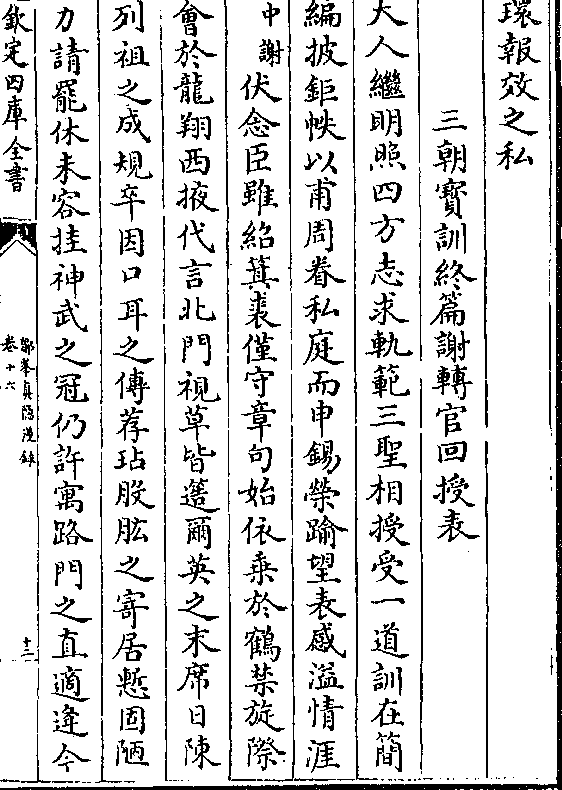 環報效之私
三朝寳訓終篇謝轉官回授表
大人繼明照四方志求軌範三聖相授受一道訓在簡
編披鉅帙以甫周眷私庭而申錫榮踰望表感溢情涯
中謝伏念臣雖紹箕裘僅守章句始依乗於鶴禁旋際
會於龍翔西掖代言北門視草皆簉爾英之末席日陳
列祖之成規卒因口耳之傳荐玷股肱之寄居慙固陋
力請罷休未容挂神武之冠仍許寓路門之直適逢今
欽定四庫全書
鄮峯真隱漫錄
卷十六
十二